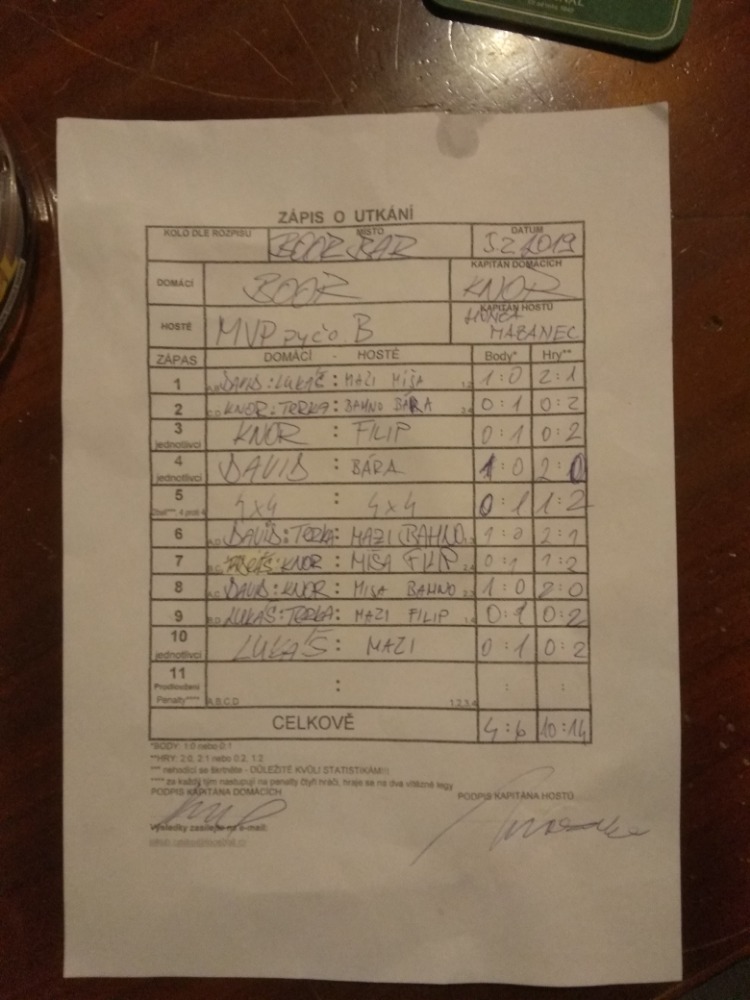 ZÁPIS O UTKÁNÍ
KOLO DLE ROZPISU MÍSTO DATUM
BOOR BAR 5.2.2019
DOMÁCÍ BOOR KAPITÁN DOMÁCÍCH
KNOR
HOSTÉ MVP B KAPITÁN HOSTŮ
HONZA
MABANEC
ZÁPAS DOMÁCÍ - HOSTÉ Body* Hry**
1 DAVID : LUKÁŠ : MAZI MÍŠA 1:0 2:1
2 C.D KNOR : TERKA : BAHNO BÁRA 3.4 0:1 0:2
3 jednotlivci KNOR : FILIP 0:1 0:2
4 jednotlivci DAVID : BÁRA 1:0 2:0
5 4x4 : 4x4 0:1 1:2
6 DAVID : TERKA : MAZI BAHNO 1:0 2:1
7 B.C LUKÁŠ : KNOR : MÍŠA FILIP 2.4 0:1 1:2
8 A.C DAVID : KNOR : MÍŠA BAHNO 2.3 1:0 2:0
9 B.D LUKÁŠ : TERKA : MAZI FILIP 1.4 0:1 0:2
10 jednotlivci LUKÁŠ : MAZI 0:1 0:2
11 Prodloužení : : :
Penalty**** A,B,C,D 1,2,3,4
CELKOVĚ 4:6 10:14
*BODY: 1:0 nebo 0:1
**HRY: 2:0, 2:1 nebo 0:2, 1:2
*** nehodící se škrtněte - DŮLEŽITÉ KVŮLI STATISTIKÁM!!!
**** za každý tým nastupují na penalty čtyři hráči, hraje se na dva vítězné legy
PODPIS KAPITÁNA DOMÁCÍCH PODPIS KAPITÁNA HOSTŮ
Výsledky zasílejte na e-mail: